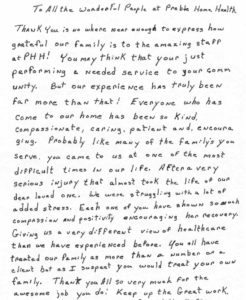 To All the Wonderful People at Preble Home Health
Thank You is no where near enough to express how
grateful our family is to the amazing staff
at PHH! You may think that your just
performing a needed service to your comm
unity. But our experience has truly been
far more than that! Everyone who has
come to our home has been so kind,
compassionate, caring, patient and, encoura
ging. Probably like many of the family's you
serve, you came to us at one of the most
difficult times in our life. After a very
serious injury that almost took the life of our
dear loved one. We were struggling with a lot of
added stress. Each one of you have shown so much
compassion and positivity encouraging her recovery.
Giving us a very different view of healthcare
than we have experienced before. You all have
treated our family as more than a number or a
client but as I suspect you would treat your own
family. Thank you All so very much for the
awesome job you do! Keep up the Great work.